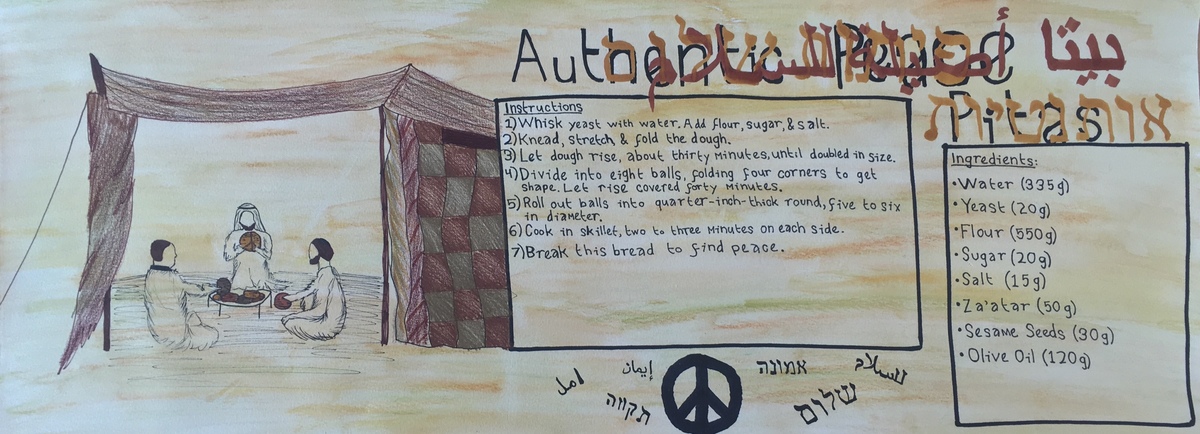 Authentic Peace
Pitas
بيتا
אותנטיות
Instructions
1) Whisk yeast with water. Add flour, sugar, & salt.
2) Knead, stretch & fold the dough.
3) Let dough rise, about thirty minutes, until doubled in size.
4) Divide into eight balls, folding four corners to get
shape. Let rise covered forty minutes.
5) Roll out balls into quarter-inch-thick round, five to six
in diameter.
6) Cook in skillet, two to three minutes on each side.
7) Break this bread to find peace.
Ingredients:
•Water (335g)
•Yeast (20g)
•Flour (550g)
•Sugar (20g)
•Salt (15g)
•Za'atar (50g)
•Sesame Seeds (30g)
•Olive Oil (120g)
امل
إيمان
תקווה
אמונה
שלום
سلام